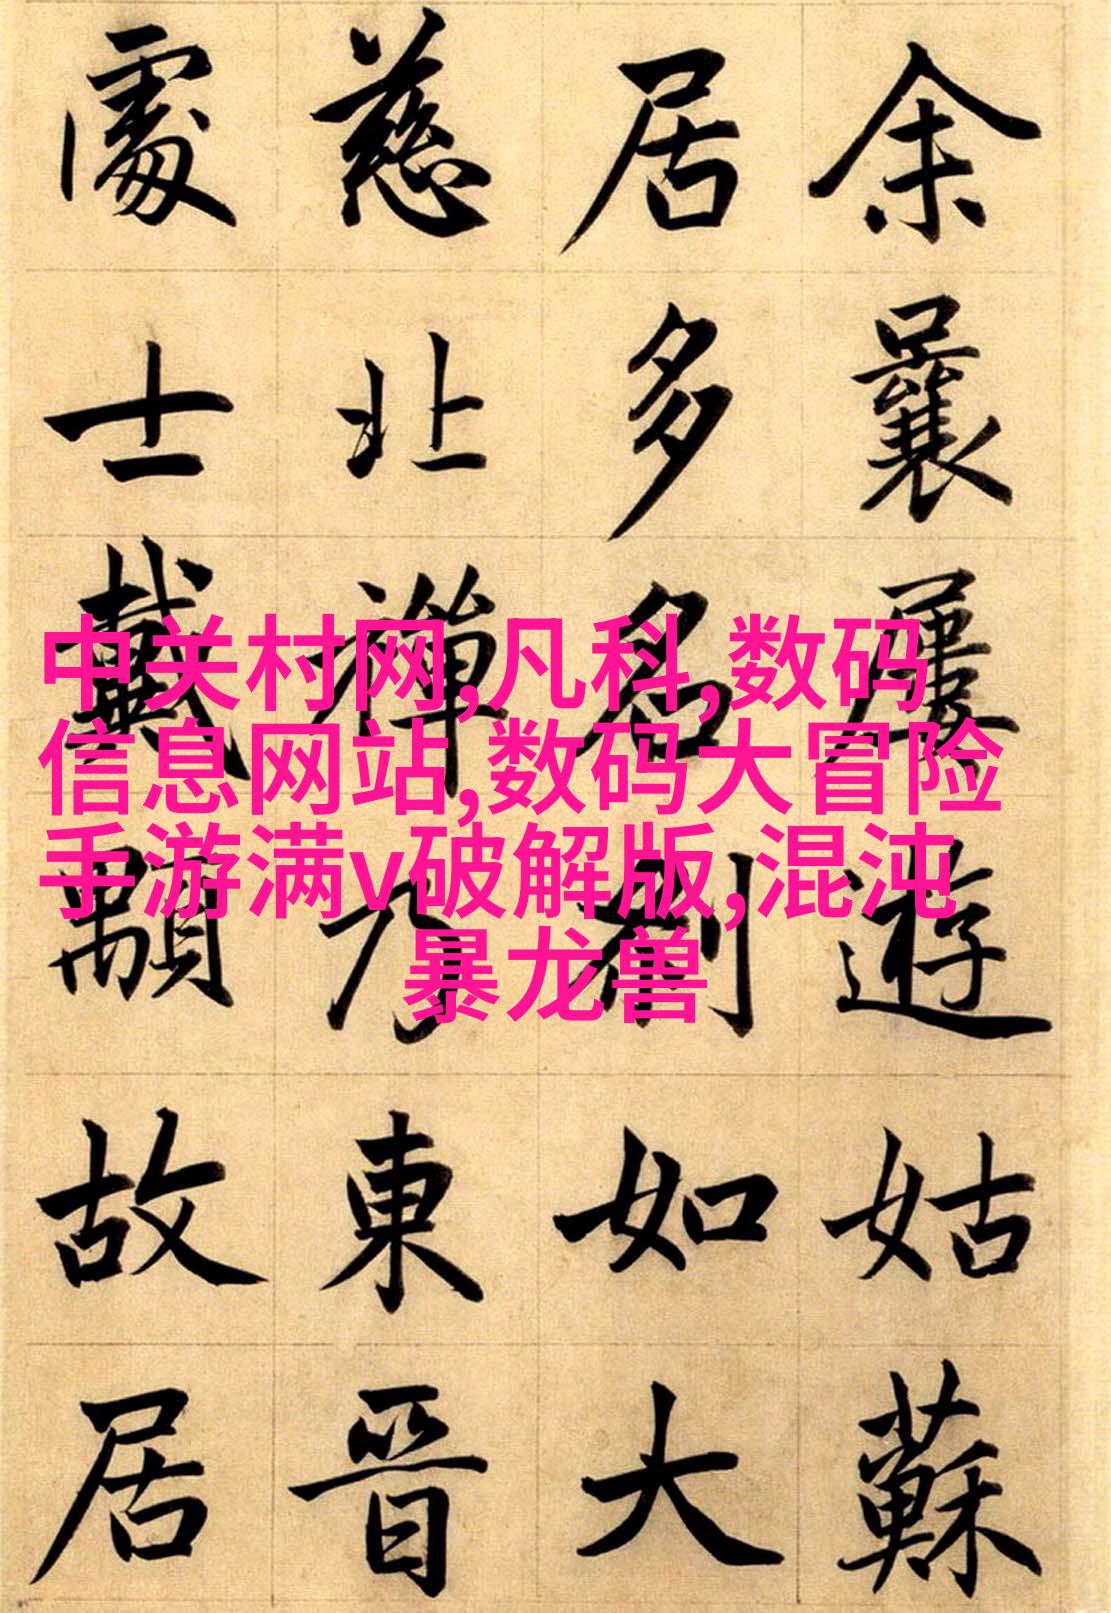 余曩屢遊姑蘇
居多名刹如大
慈北禪乃東晉
處士戴顒故居
中关村网,凡科,数码
信息网站,数码大冒险
手游满v破解版,混沌
暴龙兽